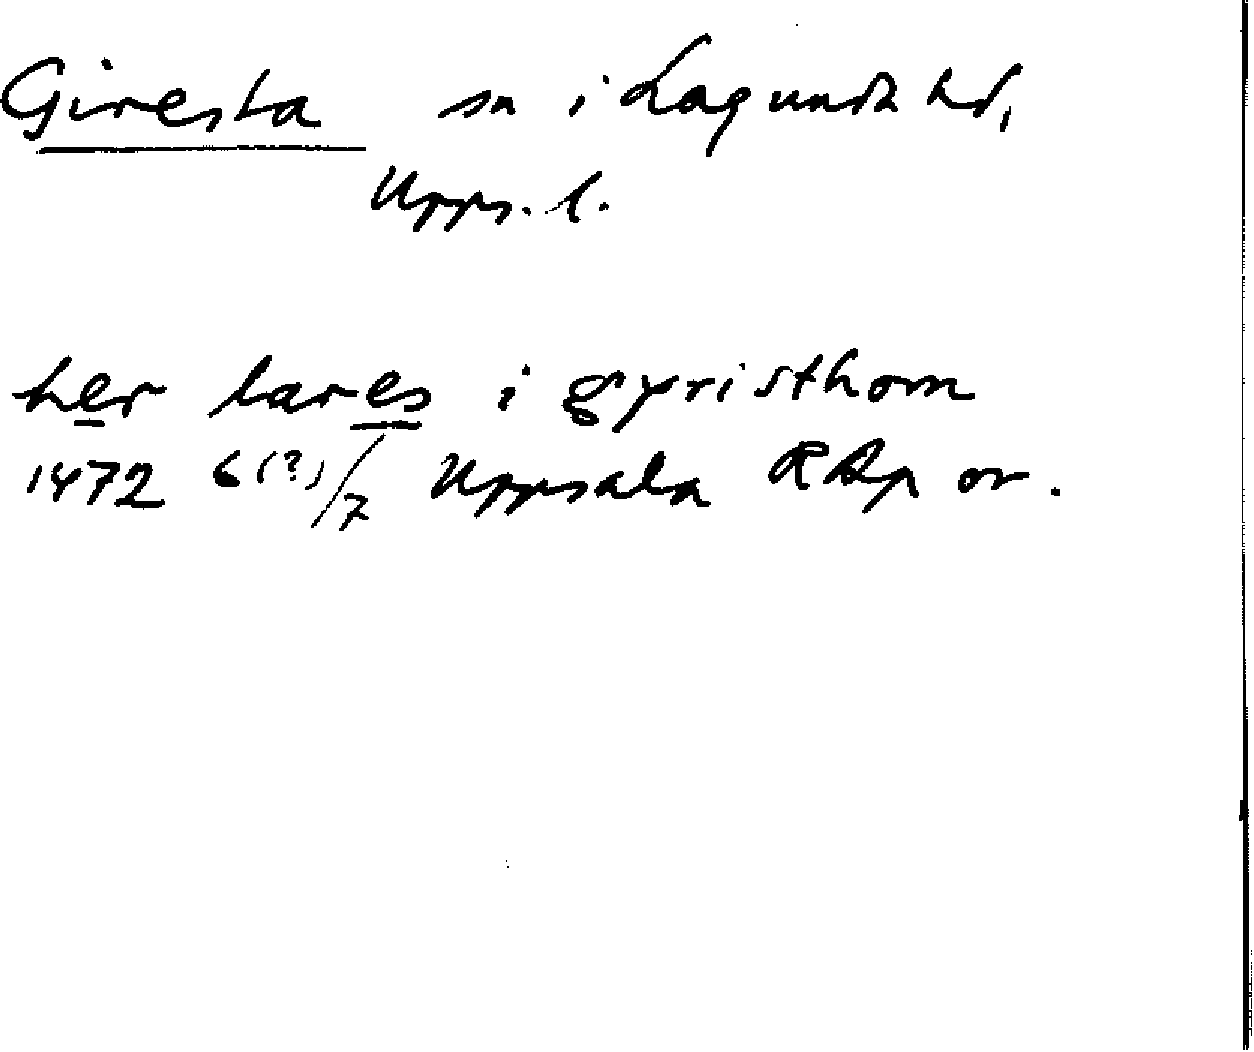 Giresta sn i Lagunda hd,
Upps. l.
her lares i gyristhom
1472 6(?)/7 Uppsala RAp or.